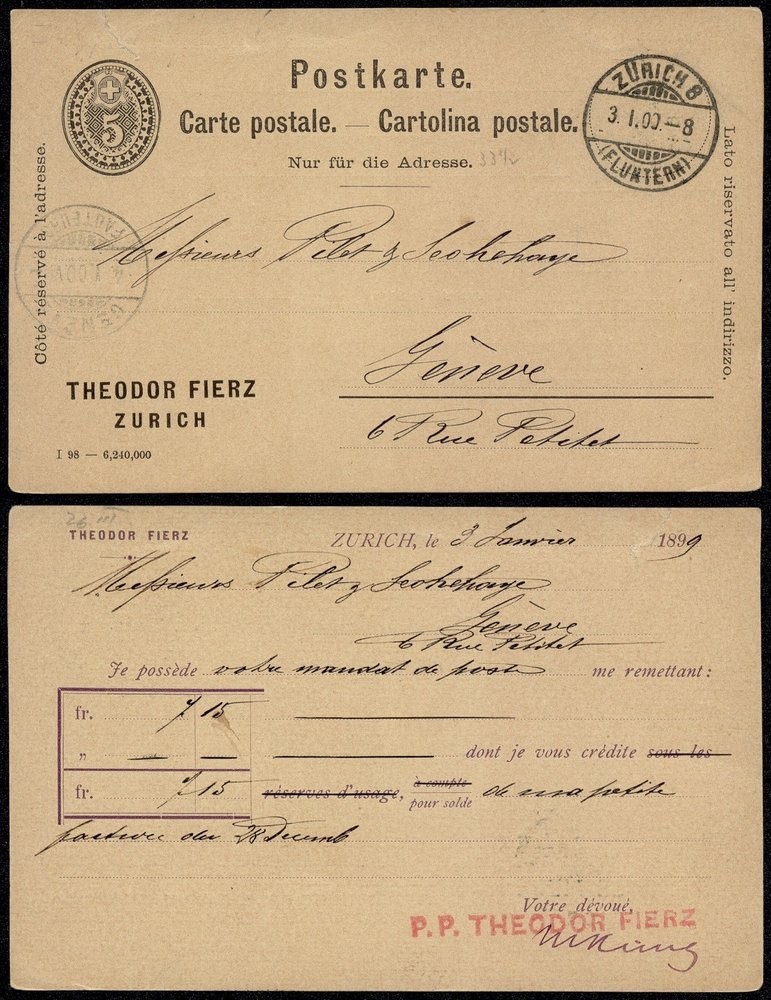 Postkarte.
Carte postale. — Cartolina postale.
Nur für die Adresse.
5
ZÜRICH 8
3. I. 00. — 8
(FLUNTERN)
Côté réservé à l'adresse.
Lato riservato all' indirizzo.
Messieurs Pilet & Sechehaye
Genève
6 Rue Petitot
THEODOR FIERZ
ZURICH
I 98 — 6,240,000
THEODOR FIERZ
ZURICH, le 3 Janvier 1899
Messieurs Pilet & Sechehaye
Genève
6 Rue Petitot
Je possède votre mandat de poste me remettant:
fr. 7 15
„ — — dont je vous crédite sous les
fr. 7.15 réserves d'usage, à compte
pour solde de ma petite
facture du 28 Decemb
Votre dévoué,
P.P. THEODOR FIERZ